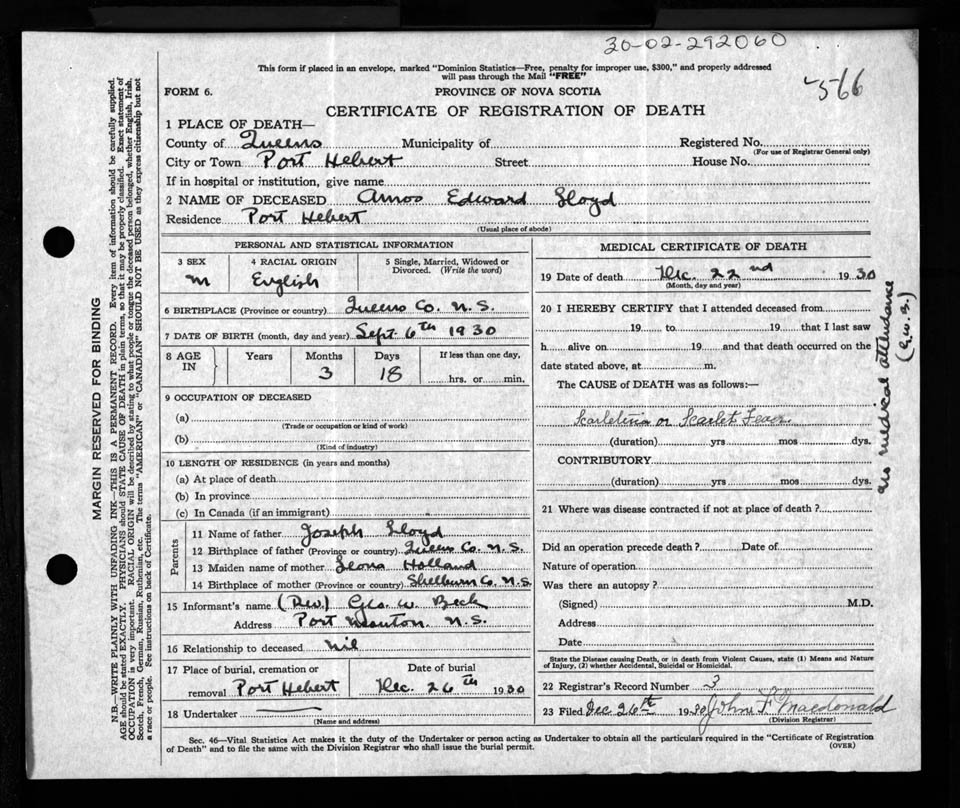 30-02-292060
This form if placed in an envelope, marked "Dominion Statistics—Free, penalty for improper use, $300," and properly addressed
will pass through the Mail "FREE"
566
FORM 6.
PROVINCE OF NOVA SCOTIA
CERTIFICATE OF REGISTRATION OF DEATH
1 PLACE OF DEATH—
County of Queens Municipality of Registered No.
(For use of Registrar General only)
City or Town Port Hebert Street House No.
If in hospital or institution, give name
2 NAME OF DECEASED Amos Edward Lloyd
Residence Port Hebert
(Usual place of abode)
PERSONAL AND STATISTICAL INFORMATION
3 SEX 4 RACIAL ORIGIN 5 Single, Married, Widowed or
Divorced. (Write the word)
M English
6 BIRTHPLACE (Province or country) Queens Co. N.S.
7 DATE OF BIRTH (month, day and year) Sept. 6th 1930
8 AGE IN Years Months Days If less than one day,
3 18 hrs. or min.
9 OCCUPATION OF DECEASED
(a)
(Trade or occupation or kind of work)
(b)
(Kind of industry)
10 LENGTH OF RESIDENCE (in years and months)
(a) At place of death
(b) In province
(c) In Canada (if an immigrant)
Parents
11 Name of father Joseph Lloyd
12 Birthplace of father (Province or country) Queens Co. N.S.
13 Maiden name of mother Leona Holland
14 Birthplace of mother (Province or country) Shelburn Co. N.S.
15 Informant's name (Rev) Geo. W. Beck
Address Port Mouton N.S.
16 Relationship to deceased nil
17 Place of burial, cremation or Date of burial
removal Port Hebert Dec. 26th 1930
18 Undertaker
(Name and address)
MEDICAL CERTIFICATE OF DEATH
19 Date of death Dec. 22nd 1930
(Month, day and year)
20 I HEREBY CERTIFY that I attended deceased from
19 to 19 that I last saw
h alive on 19 and that death occurred on the
date stated above, at m.
The CAUSE OF DEATH was as follows:—
Scarletina or Scarlet Fever
(duration) yrs mos dys.
CONTRIBUTORY
(duration) yrs mos dys.
no medical attendance
(G.W.B.)
21 Where was disease contracted if not at place of death?
Did an operation precede death? Date of
Nature of operation
Was there an autopsy?
(Signed) M.D.
Address
Date
State the Disease causing Death, or in death from Violent Causes, state (1) Means and Nature
of Injury, (2) whether Accidental, Suicidal or Homicidal.
22 Registrar's Record Number 3
23 Filed Dec 26th 1930 John F. Macdonald
(Division Registrar)
Sec. 46—Vital Statistics Act makes it the duty of the Undertaker or person acting as Undertaker to obtain all the particulars required in the "Certificate of Registration
of Death" and to file the same with the Division Registrar who shall issue the burial permit.
(OVER)
MARGIN RESERVED FOR BINDING
N.B.—WRITE PLAINLY WITH UNFADING INK—THIS IS A PERMANENT RECORD. Every item of information should be carefully supplied.
AGE should be stated EXACTLY. PHYSICIANS should STATE CAUSE OF DEATH in plain terms, so that it may be properly classified. Exact statement of
OCCUPATION is very important. RACIAL ORIGIN will be described by stating to what people or tongue the deceased person belonged, whether English, Irish,
Scotch, French, German, Russian, Ruthenian, etc. The terms "AMERICAN" or "CANADIAN" SHOULD NOT BE USED as they express citizenship but not
a race or people. See instructions on back of Certificate.